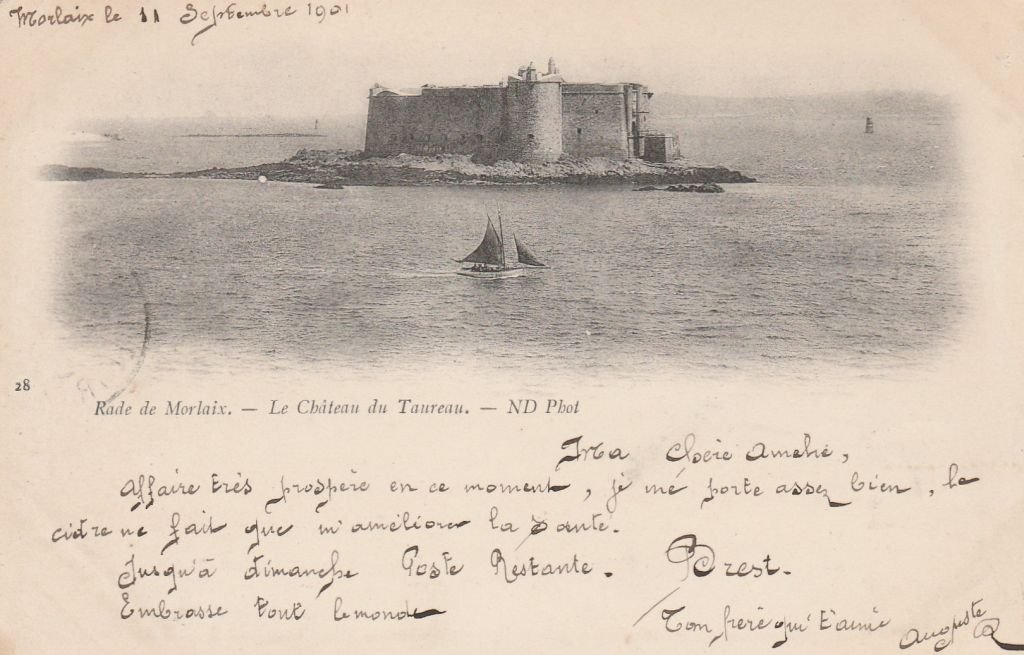 Morlaix le 11 Septembre 1901
28
Rade de Morlaix. — Le Château du Taureau. — ND Phot
Ma Chère Amelie,
Affaire très prospère en ce moment, je me porte assez bien, le
cidre ne fait que m'améliorer la santé.
Jusqu'à dimanche Poste Restante. Brest.
Embrasse tout le monde
Ton frère qui t'aime
Auguste